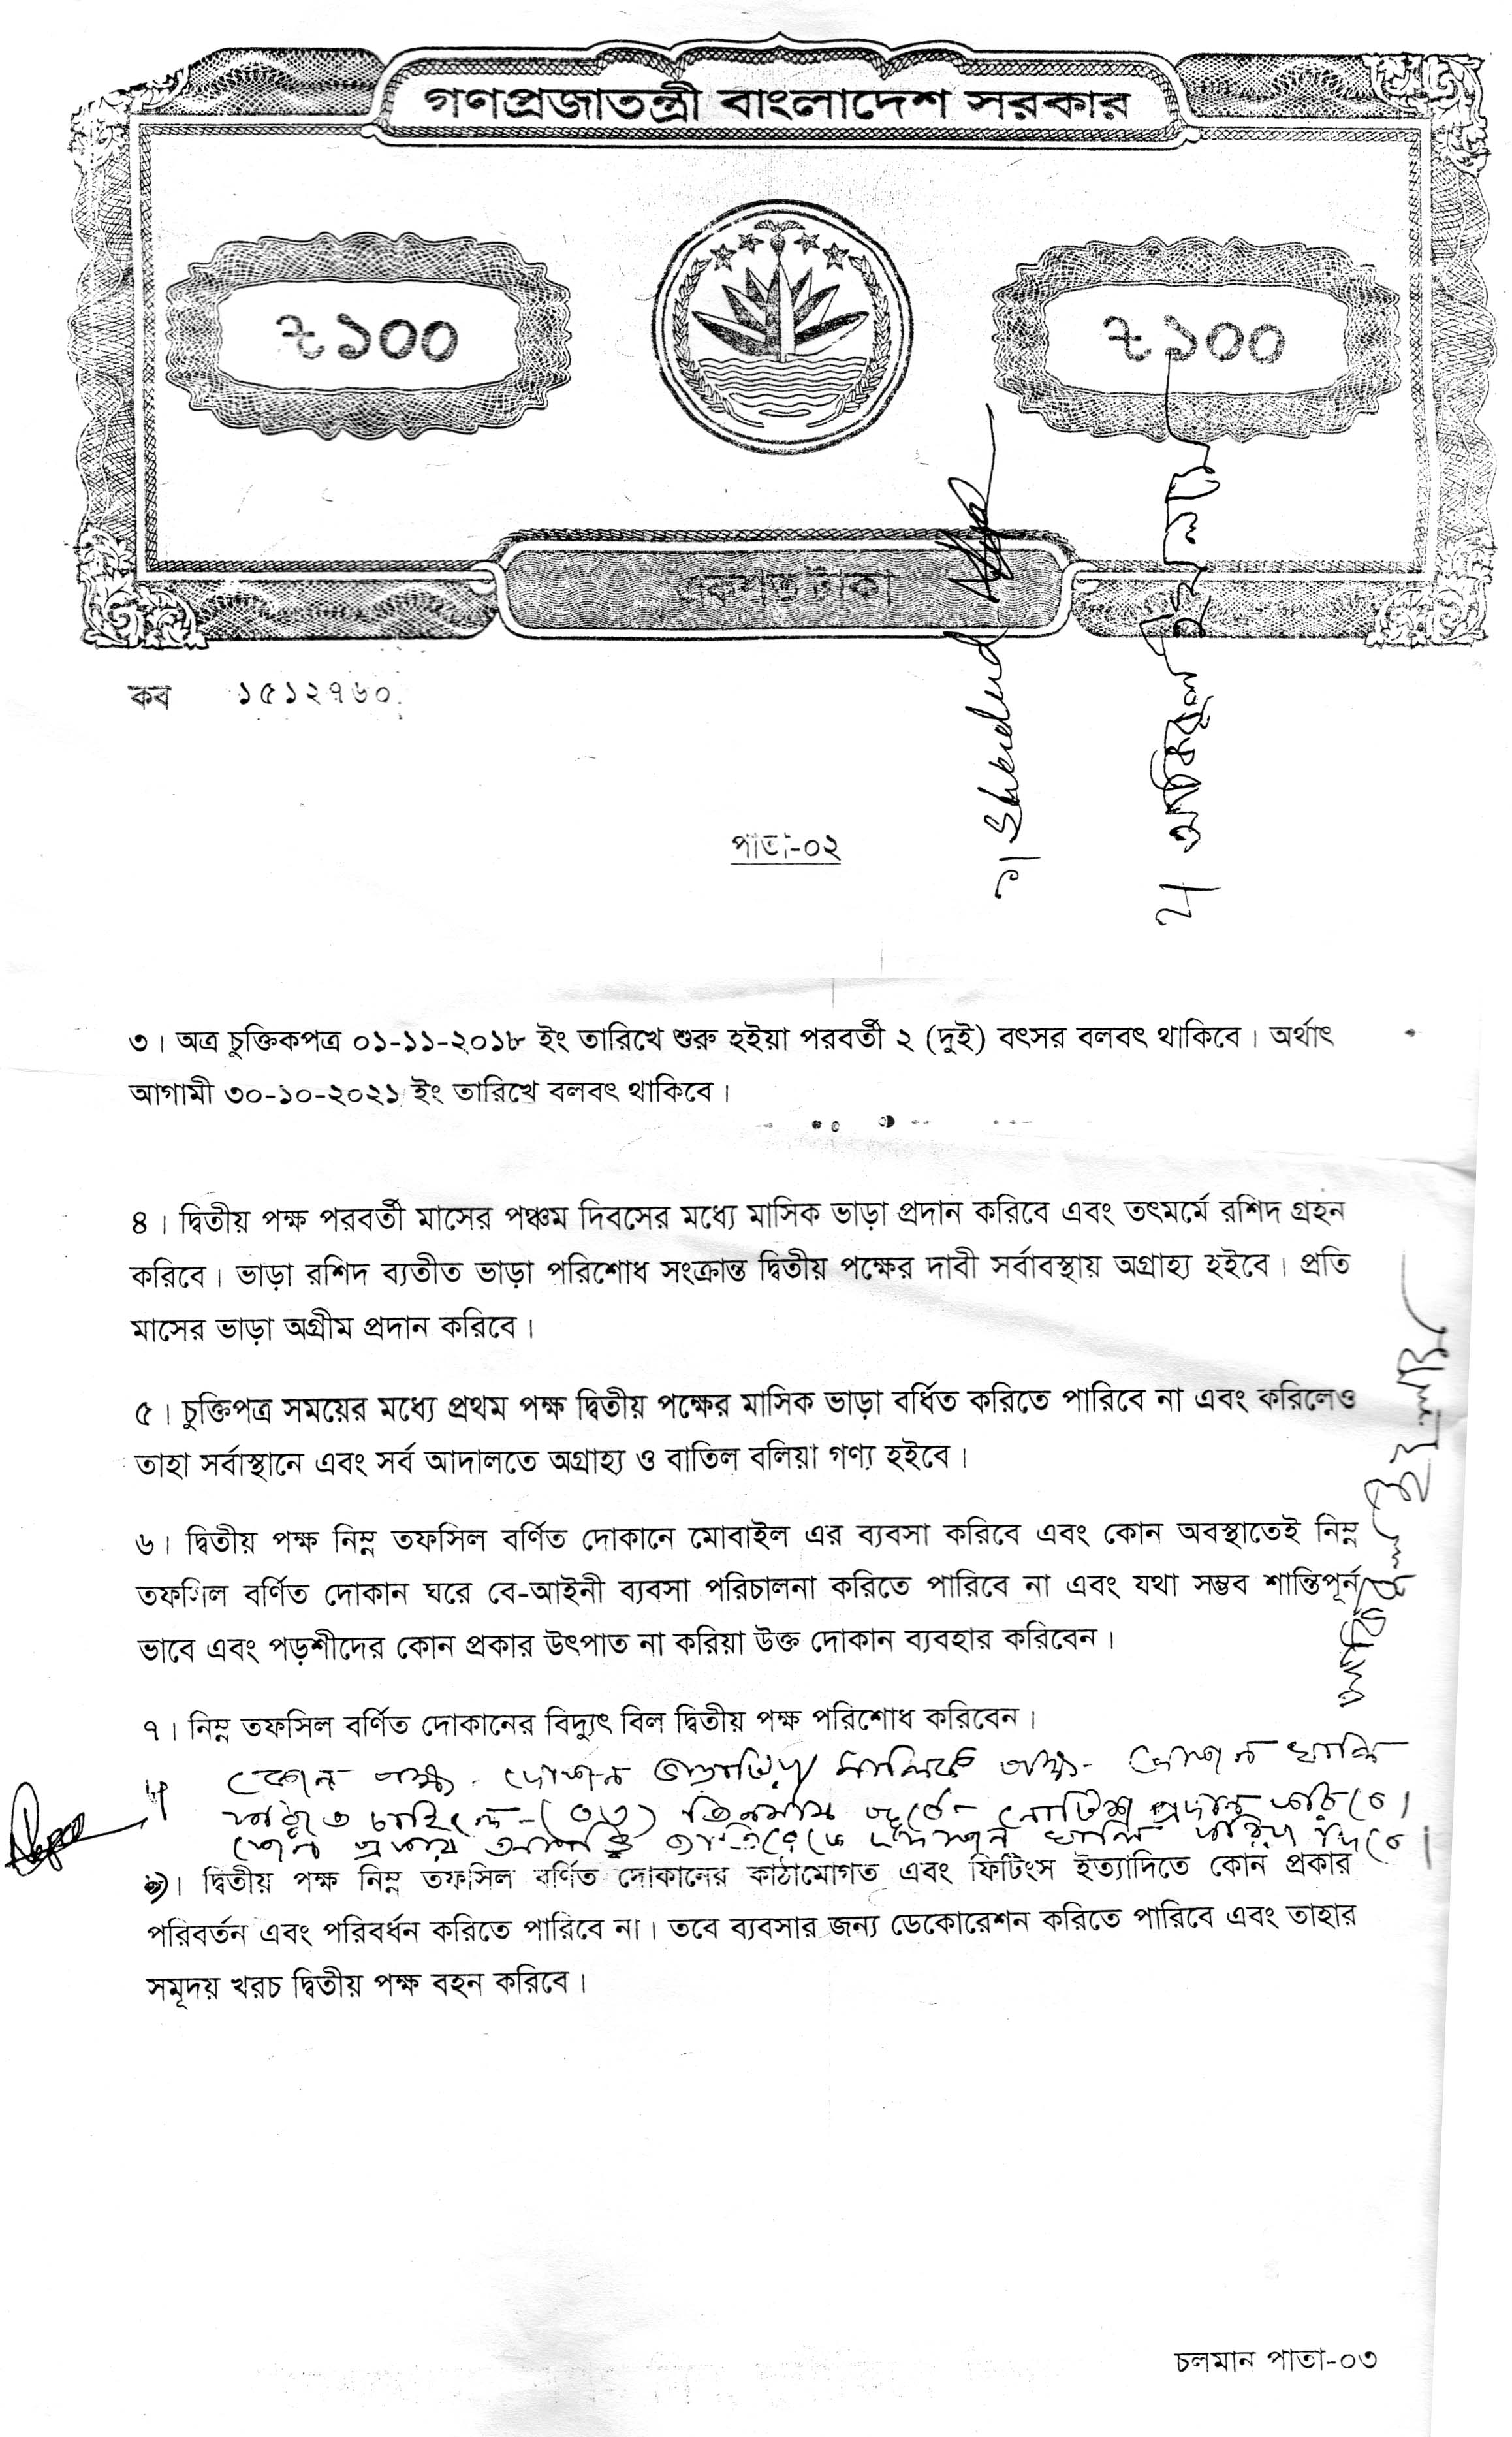 গণপ্রজাতন্ত্রী বাংলাদেশ সরকার
৳১০০
৳১০০
একশত টাকা
কব ১৫১২৭৬০
১। Shahidul
২।
পাতা-০২
৩। অত্র চুক্তিকপত্র ০১-১১-২০১৮ ইং তারিখে শুরু হইয়া পরবর্তী ২ (দুই) বৎসর বলবৎ থাকিবে। অর্থাৎ
আগামী ৩০-১০-২০২১ ইং তারিখে বলবৎ থাকিবে।
৪। দ্বিতীয় পক্ষ পরবর্তী মাসের পঞ্চম দিবসের মধ্যে মাসিক ভাড়া প্রদান করিবে এবং তৎমর্মে রশিদ গ্রহন
করিবে। ভাড়া রশিদ ব্যতীত ভাড়া পরিশোধ সংক্রান্ত দ্বিতীয় পক্ষের দাবী সর্বাবস্থায় অগ্রাহ্য হইবে। প্রতি
মাসের ভাড়া অগ্রীম প্রদান করিবে।
৫। চুক্তিপত্র সময়ের মধ্যে প্রথম পক্ষ দ্বিতীয় পক্ষের মাসিক ভাড়া বর্ধিত করিতে পারিবে না এবং করিলেও
তাহা সর্বাস্থানে এবং সর্ব আদালতে অগ্রাহ্য ও বাতিল বলিয়া গণ্য হইবে।
৬। দ্বিতীয় পক্ষ নিম্ন তফসিল বর্ণিত দোকানে মোবাইল এর ব্যবসা করিবে এবং কোন অবস্থাতেই নিম্ন
তফসিল বর্ণিত দোকান ঘরে বে-আইনী ব্যবসা পরিচালনা করিতে পারিবে না এবং যথা সম্ভব শান্তিপূর্ন
ভাবে এবং পড়শীদের কোন প্রকার উৎপাত না করিয়া উক্ত দোকান ব্যবহার করিবেন।
৭। নিম্ন তফসিল বর্ণিত দোকানের বিদ্যুৎ বিল দ্বিতীয় পক্ষ পরিশোধ করিবেন।
৮। কোন পক্ষ দোকান ভাড়াটিয়া/ মালিক পক্ষ দোকান খালি
করিতে চাইলে (০৩) তিনমাস পূর্বে নোটিশ প্রদান করিবে।
কোন প্রকার আপত্তি ব্যতিরেকে দোকান খালি করিয়া দিবে।
৯। দ্বিতীয় পক্ষ নিম্ন তফসিল বর্ণিত দোকানের কাঠামোগত এবং ফিটিংস ইত্যাদিতে কোন প্রকার
পরিবর্তন এবং পরিবর্ধন করিতে পারিবে না। তবে ব্যবসার জন্য ডেকোরেশন করিতে পারিবে এবং তাহার
সমূদয় খরচ দ্বিতীয় পক্ষ বহন করিবে।
চলমান পাতা-০৩